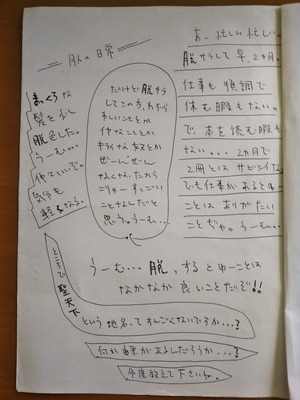 月人の日常
お、忙しい忙しい。
脱サラして早、2ヵ月。
仕事も順調で
休む暇もない。
で、本を読む暇も
ない。...2ヵ月で
2冊とはサビシイな
でも仕事があるとゆー
ことはありがたい
ことぢゃ。うーむ...
だけど脱サラ
してこの方、
わずら
わしいことか
イヤなこととか
キライな女とか
ぜーんぜん
なくなったから
こりゃーすっごい
ことなんだと
思う。うーむ...
まっくろな
髪を少し
脱色した。
うーむ...
似ていいで。
気分も
軽くなる。
うーむ...脱、するとゆーことは
なかなか良いことだぞ!!
ところで聖天下
という地名ってすんごくないですか...?
何か事があるんだろうか...?
今度教えて下さいね。